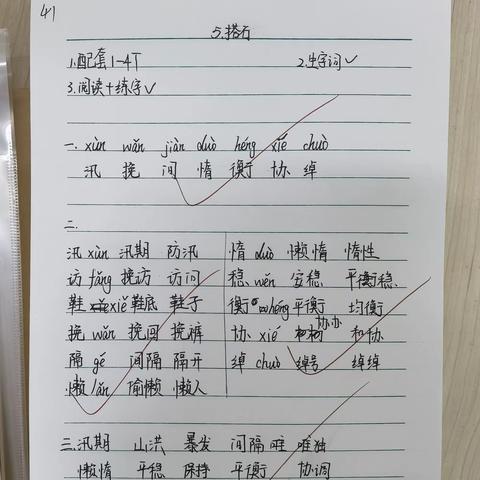 41
5.搭石
1.配套1-4T 2.生字词✓
3.阅读+练字✓
一. xùn wǎn jiàn duò héng xié chuò
汛 挽 间 惰 衡 协 绰
二.
汛 xùn 汛期 防汛 惰 duò 懒惰 惰性
访 fǎng 挽访 访问 稳 wěn 安稳 平衡稳
鞋 xié 鞋底 鞋子 衡 héng 平衡 均衡
挽 wǎn 挽回 挽裤 协 xié 协办 和协
隔 gé 间隔 隔开 绰 chuò 绰号 绰绰
懒 lǎn 偷懒 懒人
三.汛期 山洪 暴发 间隔 唯 唯独
懒惰 平稳 保持 平衡 协调